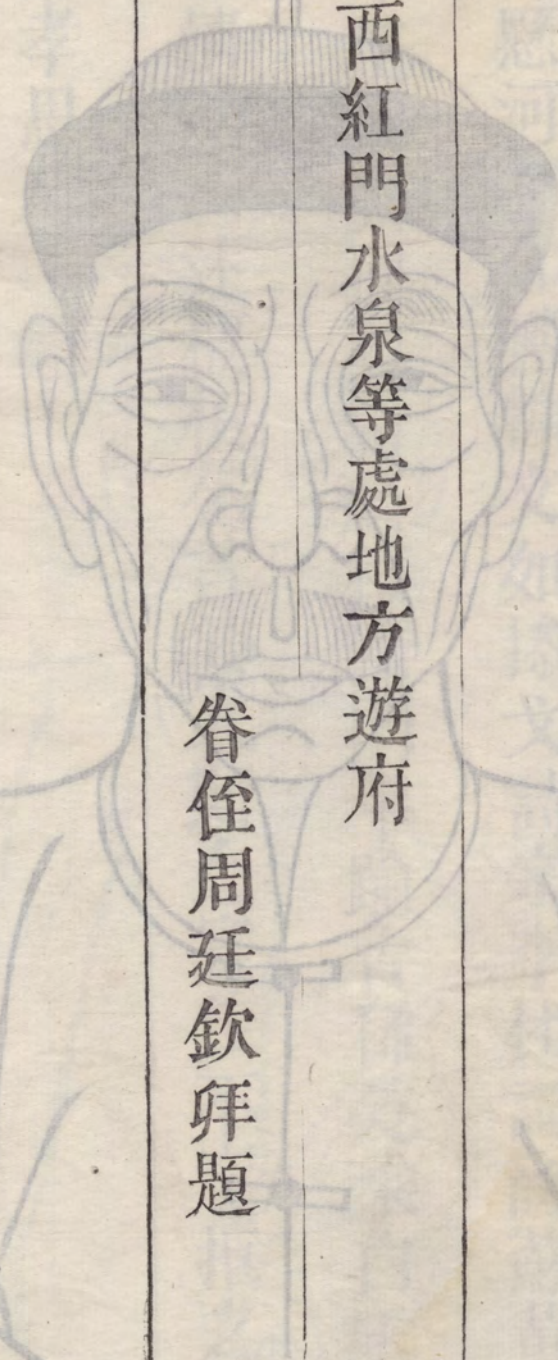 西紅門水泉等處地方遊府
眷侄周廷欽拜題